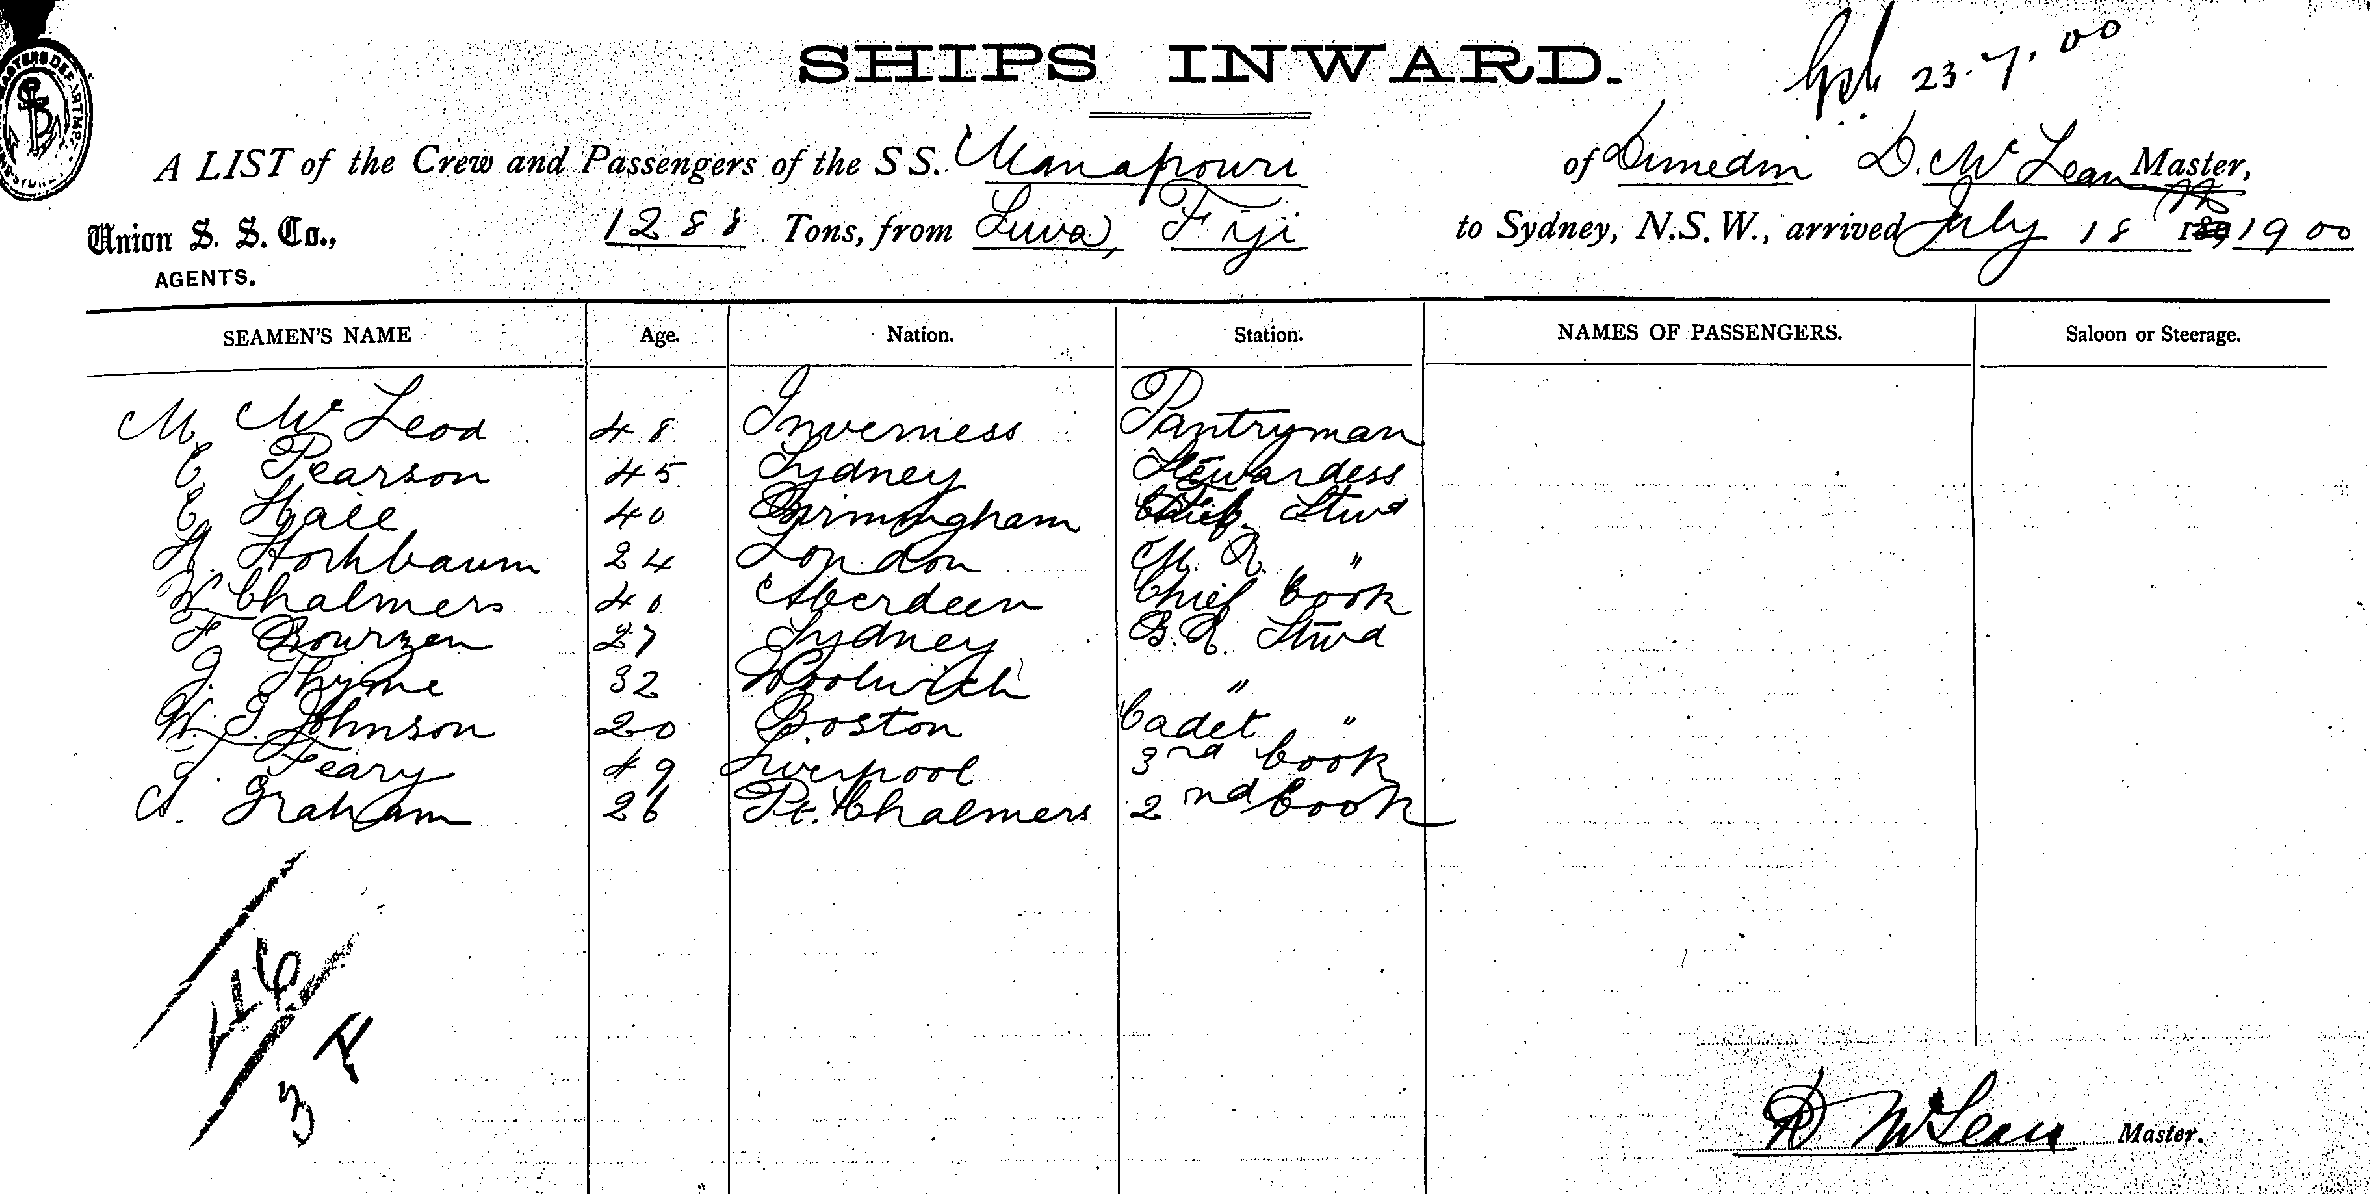 SHIPS INWARD.
23.7.00
A LIST of the Crew and Passengers of the SS. Manapouri of Dunedin D. McLean Master,
Union S. S. Co., 1288 Tons, from Suva, Fiji to Sydney, N.S.W., arrived July 18 1900
AGENTS.
SEAMEN'S NAME Age. Nation. Station. NAMES OF PASSENGERS. Saloon or Steerage.
M McLeod 48 Inverness Pantryman
E Pearson 45 Sydney Stewardess
E Hall 40 Birmingham Chief Stwd
H. Storkbaum 24 London M. R. "
W Chalmers 40 Aberdeen Chief Cook
F Bourzen 27 Sydney B.R. Stwd
J. Thyme 32 Woolwich "
W. J. Johnson 20 Boston Cadet "
T. Feary 49 Liverpool 3rd Cook
A. Graham 26 Pt. Chalmers 2nd Cook
46
3 F
D McLean Master.